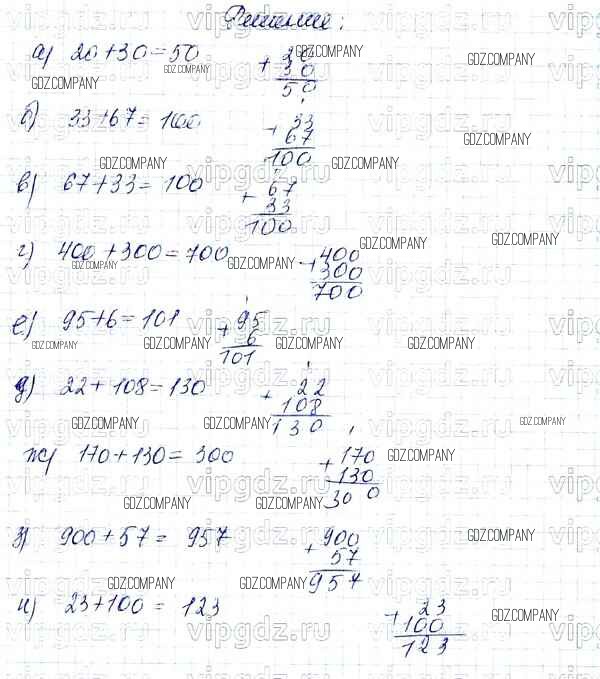 Решение:
а) 20+30=50
+ 20
30
50
б) 33+67=100
+ 33
67
100
в) 67+33=100
+ 67
33
100
г) 400+300=700
+ 400
300
700
е) 95+6=101
+ 95
6
101
д) 22+108=130
+ 22
108
130
ж) 170+130=300
+ 170
130
300
з) 900+57=957
+ 900
57
957
и) 23+100=123
+ 23
100
123
vipgdz.ru
GDZ.COMPANY